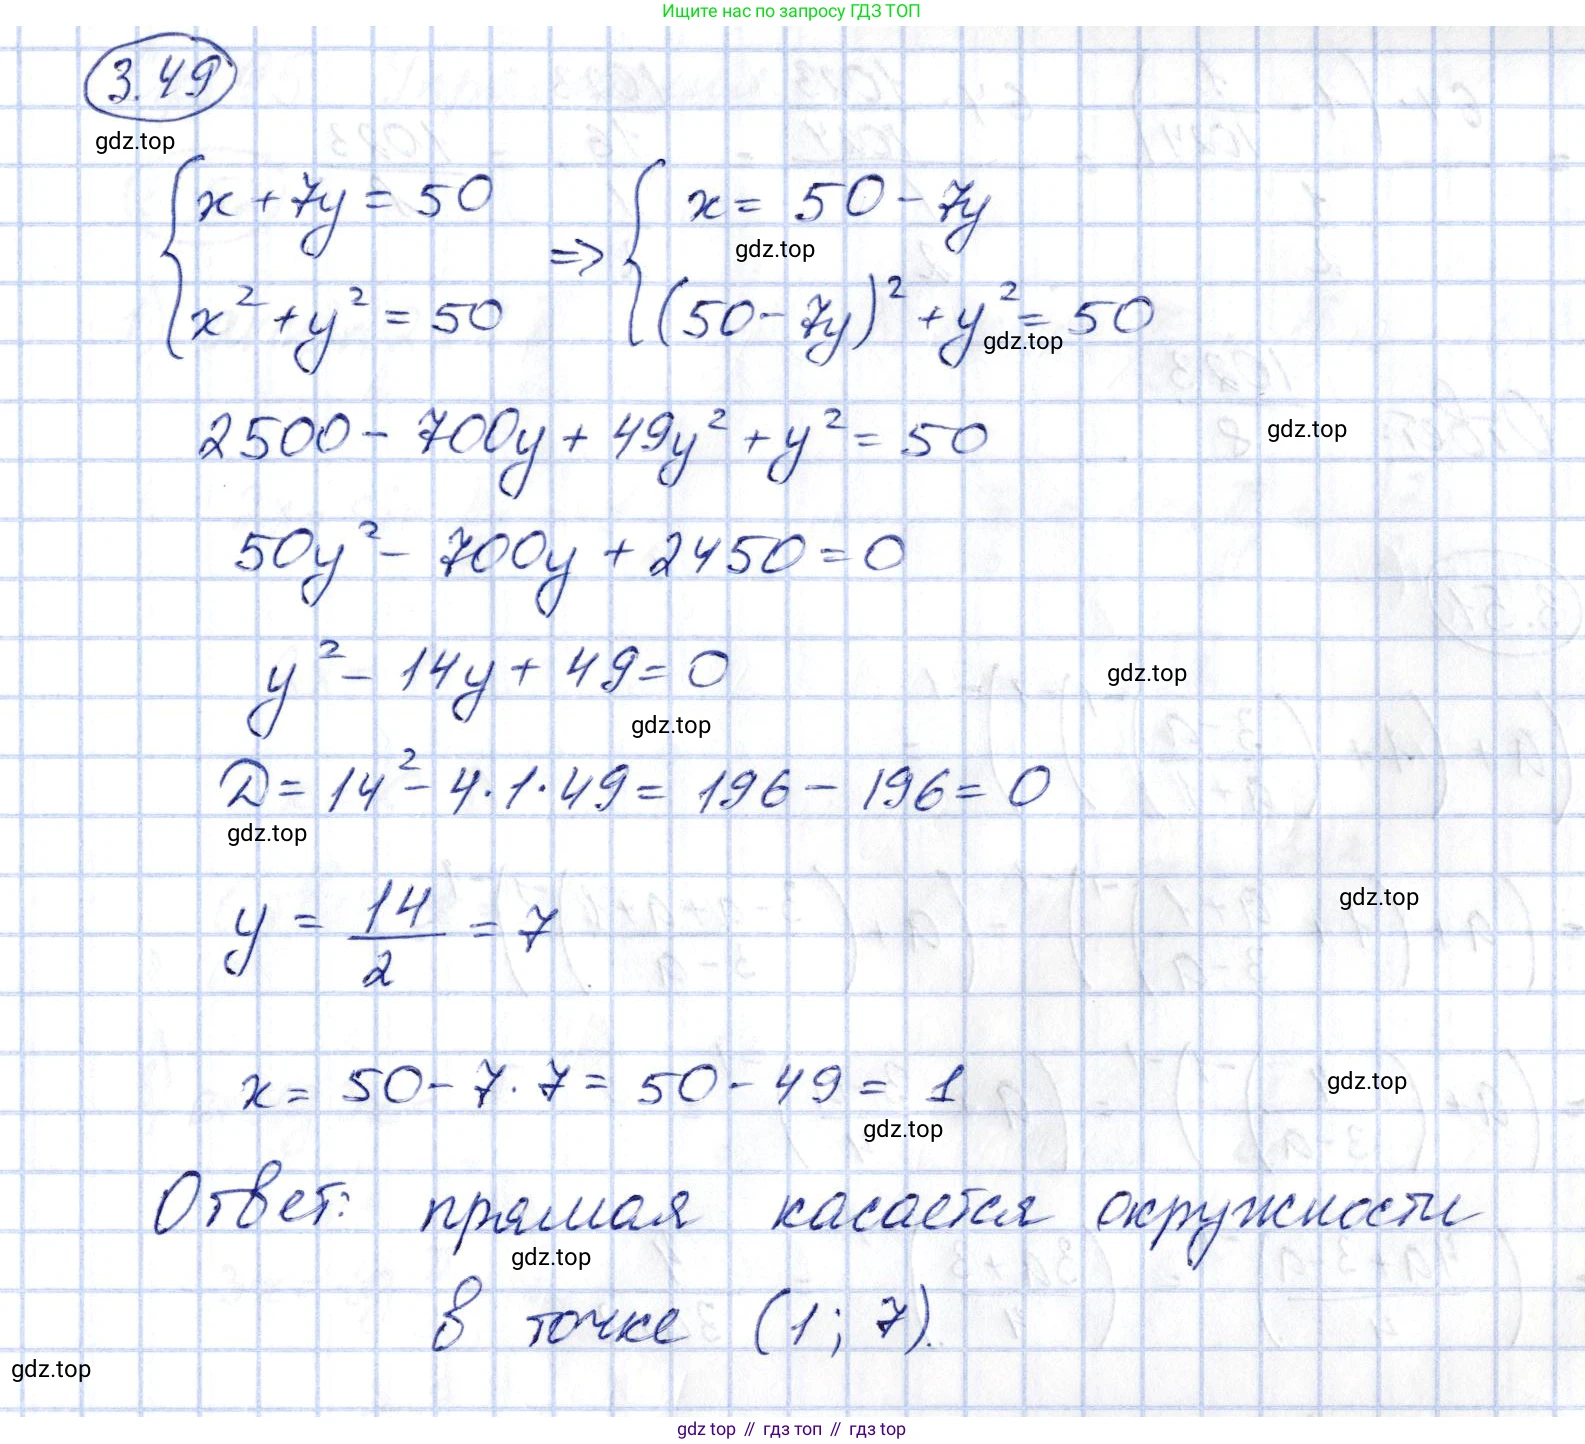 Ищите нас по запросу ГДЗ ТОП
3.49
gdz.top
x + 7y = 50 => x = 50 - 7y
gdz.top
x² + y² = 50 (50 - 7y)² + y² = 50
gdz.top
2500 - 700y + 49y² + y² = 50
gdz.top
50y² - 700y + 2450 = 0
y² - 14y + 49 = 0
gdz.top
gdz.top
D = 14² - 4·1·49 = 196 - 196 = 0
gdz.top
y = 14/2 = 7
gdz.top
x = 50 - 7·7 = 50 - 49 = 1
gdz.top
gdz.top
Ответ: прямая касается окружности
gdz.top
в точке (1; 7).
gdz.top
gdz top // гдз топ // гдз top